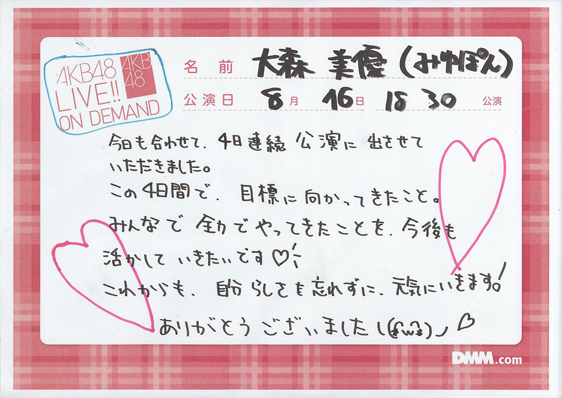 AKB48
LIVE!!
ON DEMAND
AKB
48
名前 大森 美優(みゆぽん)
公演日 8月 16日 18 30 公演
今日も合わせて、4日連続 公演に 出させて
いただきました。
この4日間で、目標に向かってきたこと。
みんなで 全力でやってきたことを、今後も
活かして いきたいです♡!
これからも、自分らしさを忘れずに、元気にいきます!
ありがとうございました
DMM.com